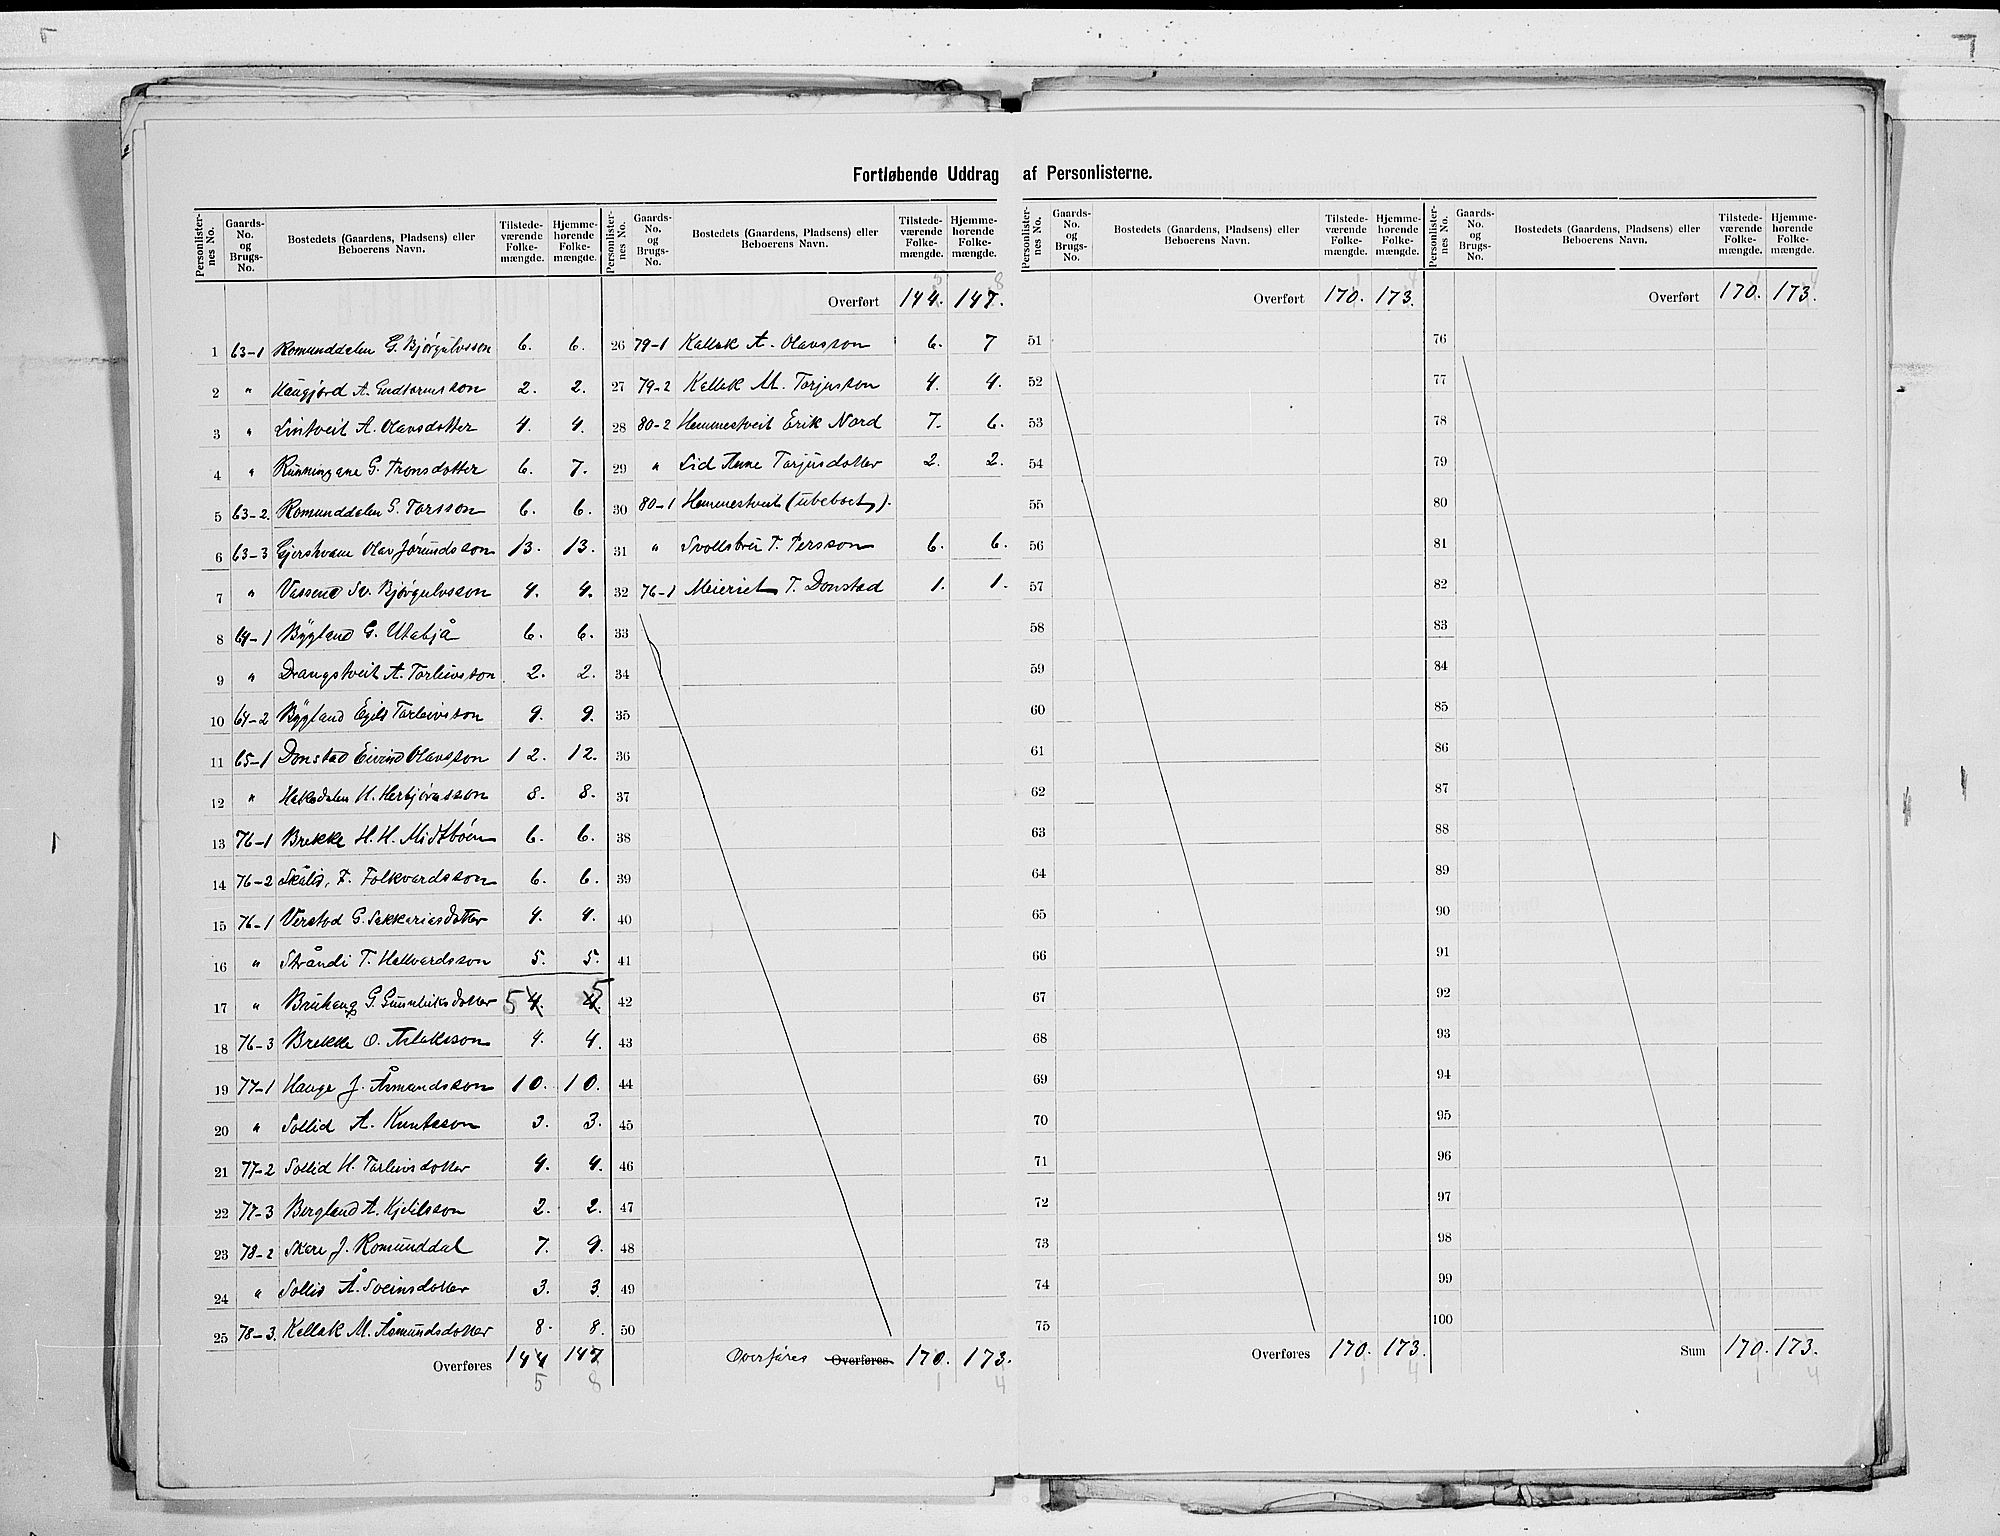 Fortløbende Uddrag af Personlisterne.
Personlister-nes No. Gaards-No. og Brugs-No. Bostedets (Gaardens, Pladsens) eller Beboerens Navn. Tilstede-værende Folke-mængde. Hjemme-hørende Folke-mængde.
1 63-1 Romunddalen G. Bjørgulvsson 6. 6.
2 " Haugjord A. Gudtormsson 2. 2.
3 " Lintveit A. Olavsdotter 4. 4.
4 " Runningane G. Tronsdotter 6. 7.
5 63-2. Romunddalen S. Torsson 6. 6.
6 63-3 Gjershvam Olav Jørundsson 13. 13.
7 " Vassend Sv. Bjørgulvsson 4. 4.
8 64-1 Bygland G. Utabjå 6. 6.
9 " Drangstveit A. Torleivsson 2. 2.
10 64-2 Bygland Egild Torleivsson 9. 9.
11 65-1 Donstad Eivind Olavsson 12. 12.
12 " Hakedalen H. Herbjørnsson 8. 8.
13 76-1 Brekke H. H. Midtbøen 6. 6.
14 76-2 Skålid, T. Folkvardsson 6. 6.
15 76-1 Verstad G. Sakkariasdotter 4. 4.
16 " Strandi T. Hallvardsson 5. 5.
17 " Bruhaug G. Gunleiksdotter 5 4. 4 5
18 76-3 Brekke O. Aslaksson 4. 4.
19 77-1 Hauge J. Åsmundsson 10. 10.
20 " Sollid A. Knutsson 3. 3.
21 77-2 Sollid H. Torleivsdotter 4. 4.
22 77-3 Bergland A. Kjetilsson 2. 2.
23 78-2 Skere J. Romunddal 7. 9.
24 " Sollid Å. Sveinsdotter 3. 3
25 78-3. Kellak M. Åsmundsdotter 8. 8.
Overføres 144 147
5 8
Personlister-nes No. Gaards-No. og Brugs-No. Bostedets (Gaardens, Pladsens) eller Beboerens Navn. Tilstede-værende Folke-mængde. Hjemme-hørende Folke-mængde.
5 8
Overført 144. 147.
26 79-1 Kallak A. Olavsson 6. 7
27 79-2 Kellak M. Torjusson 4. 4.
28 80-2 Hemmestveit Erik Nord 7. 6.
29 " Lid Anne Torjusdotter 2. 2.
30 80-1 Hemmestveit (ubeboet).
31 " Svollsbru T. Persson 6. 6.
32 76-1 Meieriet T. Donstad 1. 1.
33
34
35
36
37
38
39
40
41
42
43
44
45
46
47
48
49
50
Overføres Overføres 170. 173.
1 4
Personlister-nes No. Gaards-No. og Brugs-No. Bostedets (Gaardens, Pladsens) eller Beboerens Navn. Tilstede-værende Folke-mængde. Hjemme-hørende Folke-mængde.
1 4
Overført 170. 173.
51
52
53
54
55
56
57
58
59
60
61
62
63
64
65
66
67
68
69
70
71
72
73
74
75
Overføres 170. 173.
1 4
Personlister-nes No. Gaards-No. og Brugs-No. Bostedets (Gaardens, Pladsens) eller Beboerens Navn. Tilstede-værende Folke-mængde. Hjemme-hørende Folke-mængde.
1 4
Overført 170. 173.
76
77
78
79
80
81
82
83
84
85
86
87
88
89
90
91
92
93
94
95
96
97
98
99
100
Sum 170. 173.
1 4